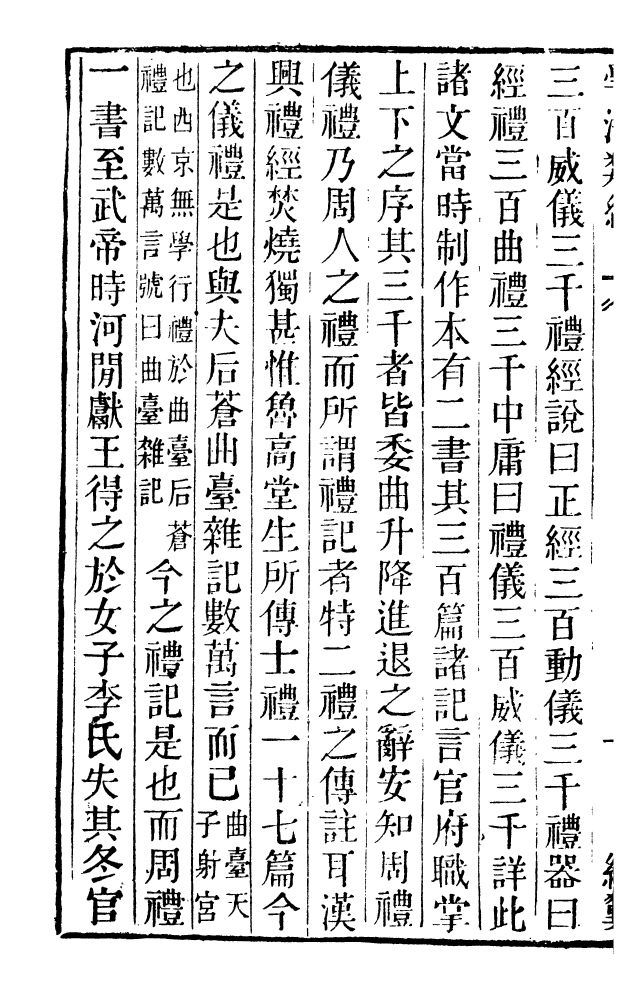 三百威儀三千禮經說曰正經三百動儀三千禮器曰
經禮三百曲禮三千中庸曰禮儀三百威儀三千詳此
諸文當時制作本有二書其三百篇諸記言官府職掌
上下之序其三千者皆委曲升降進退之辭安知周禮
儀禮乃周人之禮而所謂禮記者特二禮之傳註耳漢
興禮經焚燒獨甚惟魯高堂生所傳士禮一十七篇今
之儀禮是也與大后蒼曲臺雜記數萬言而已曲臺天
子射宮
也西京無學行禮於曲臺后蒼
禮記數萬言號曰曲臺雜記
今之禮記是也而周禮
一書至武帝時河閒獻王得之於女子李氏失其冬官